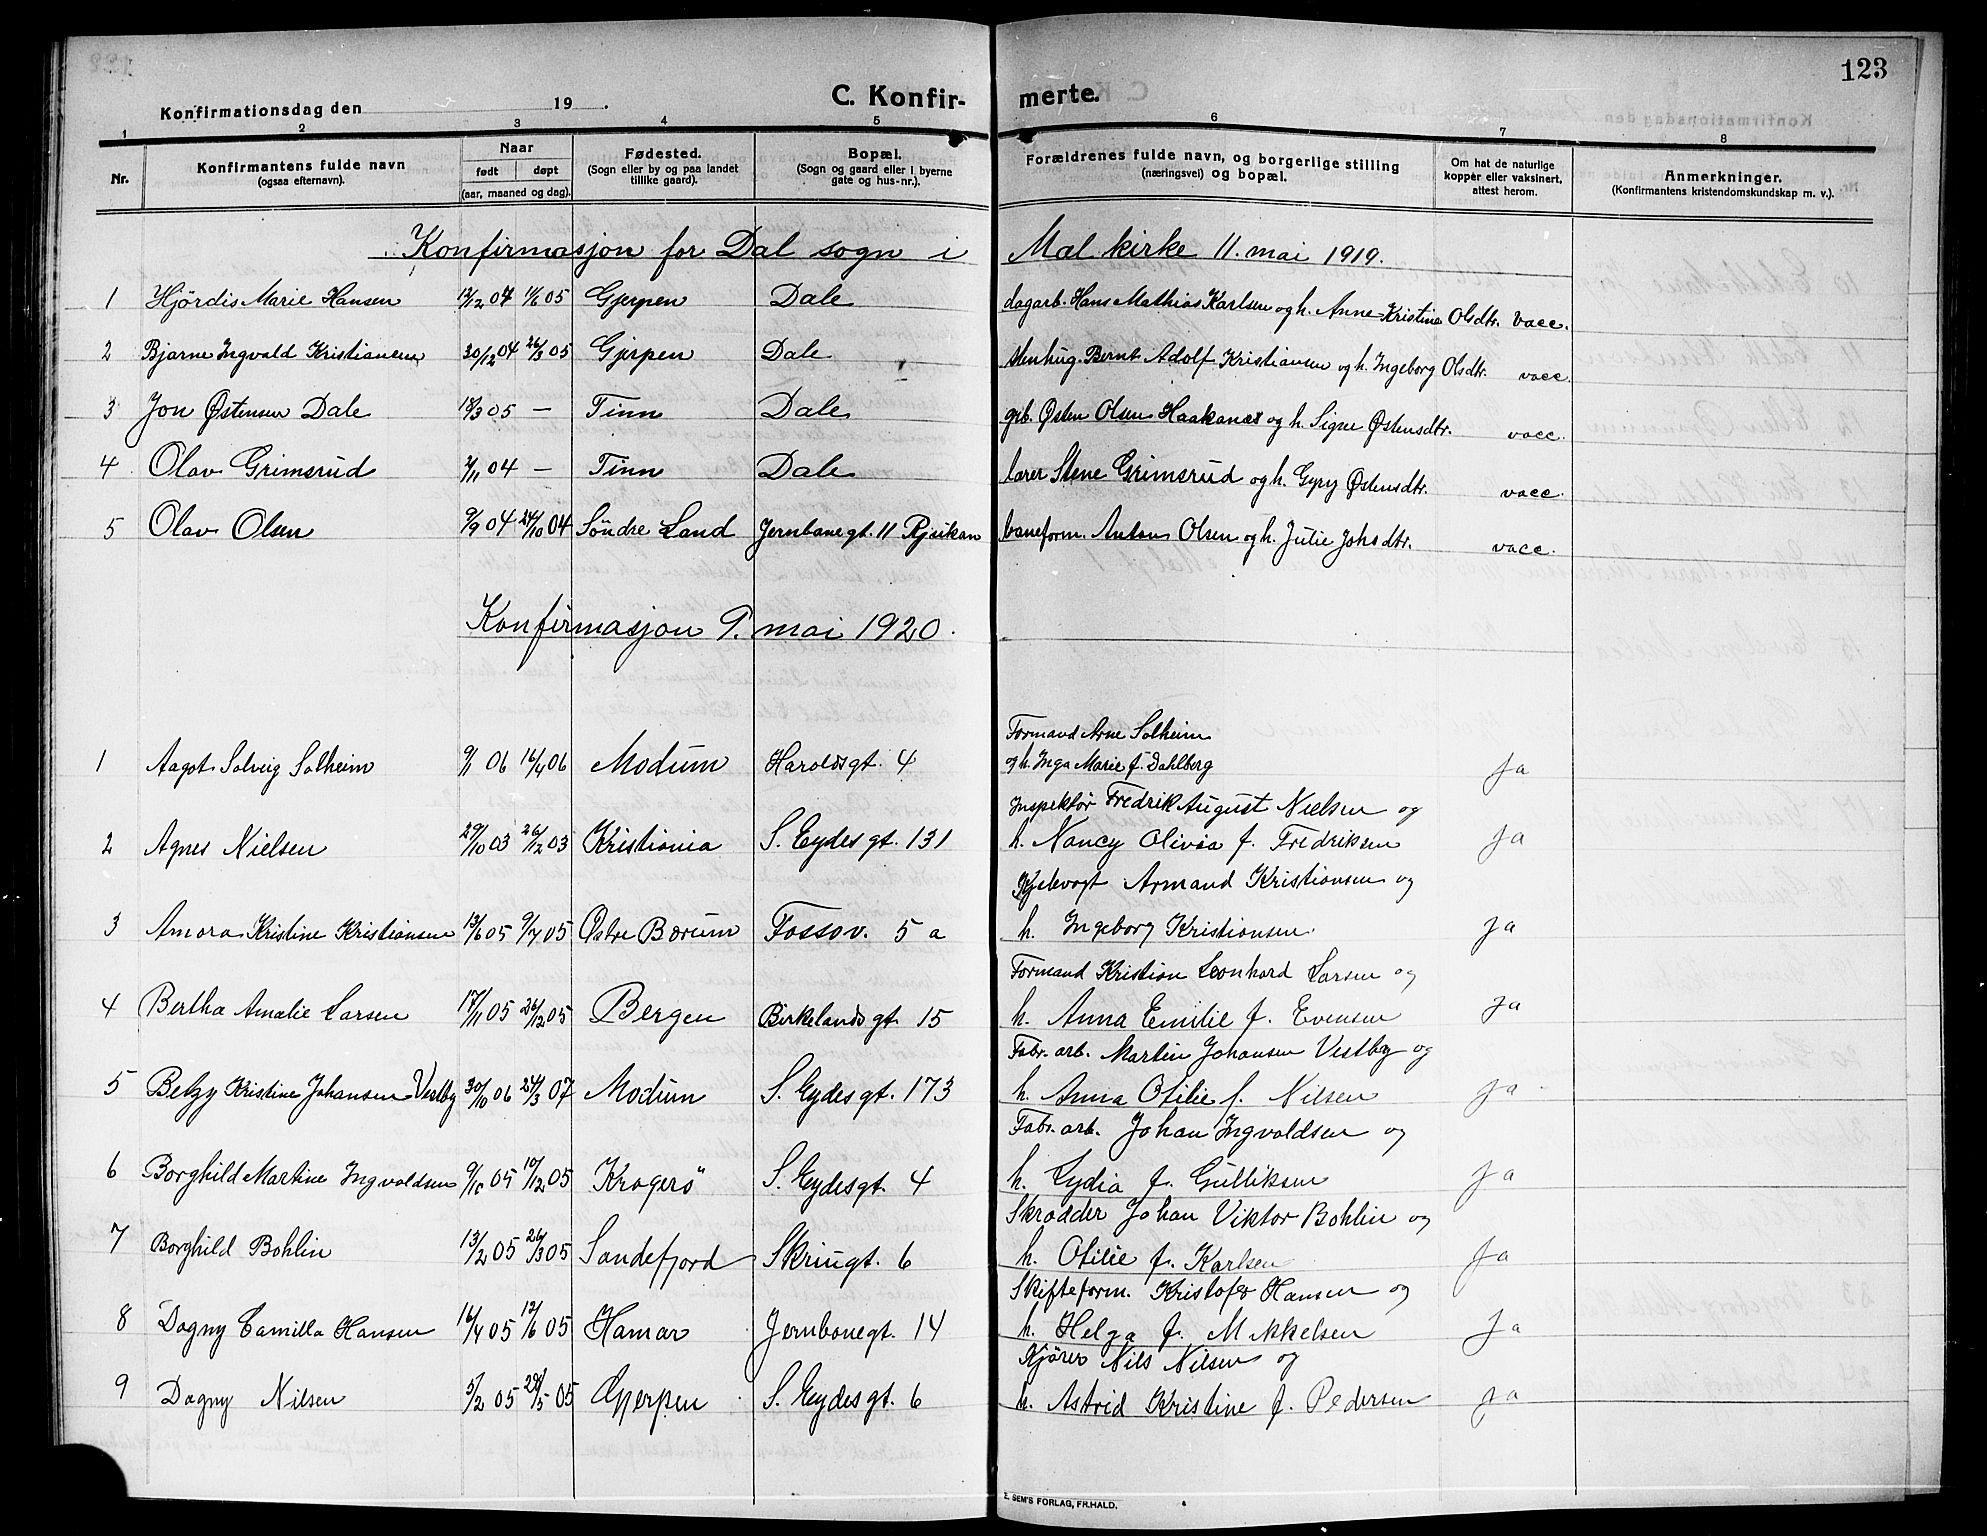 123
Konfirmationsdag den 19 .
C. Konfir- merte.
1 2 3 4 5 6 7 8
Nr. Konfirmantens fulde navn (ogsaa efternavn). Naar født døpt (aar, maaned og dag). Fødested. (Sogn eller by og paa landet tillike gaard). Bopæl. (Sogn og gaard eller i byerne gate og hus-nr.). Forældrenes fulde navn, og borgerlige stilling (næringsvei) og bopæl. Om hat de naturlige kopper eller vaksinert, attest herom. Anmerkninger. (Konfirmantens kristendomskundskap m. v.).
Konfirmasjon for Dal sogn i Mæl kirke 11. mai 1919.
1 Hjördis Marie Hansen 12/12 04 1/6 05 Gjerpen Dale dagarb. Hans Mathias Karlsen og h. Anne Kristine Olsdtr. vacc.
2 Bjarne Ingvald Kristiansen 30/12 04 26/3 05 Gjerpen Dale stenhug. Bernt Adolf Kristiansen og h. Ingeborg Olsdtr. vacc.
3 Jon Østensen Dale 18/3 05 — Tinn Dale grb. Østen Olsen Haakanæs og h. Signe Østensdtr. vacc.
4 Olav Grimsrud 2/11 04 — Tinn Dale lærer Stene Grimsrud og h. Gyry Østensdtr. vacc.
5 Olav Olsen 9/9 04 24/10 04 Söndre Land Jernbanegt. 11 Rjukan baneform. Anton Olsen og h. Julie Johsdtr. vacc.
Konfirmasjon 9. mai 1920.
Formand Arne Solheim
1 Aagot Solveig Solheim 9/1 06 16/4 06 Modum Haraldsgt. 4 og h. Inga Marie f. Dahlberg Ja
Inspektør Fredrik August Nielsen og
2 Agnes Nielsen 29/10 03 26/12 03 Kristiania S. Eydes gt. 131 h. Nancy Olivia f. Fredriksen Ja
Kjelevogt Armand Kristiansen og
3 Amora Kristine Kristiansen 13/6 05 9/7 05 Østre Bærum Fossov. 5 a h. Ingeborg Kristiansen. Ja
Formand Kristian Leonhard Larsen og
4 Bertha Amalie Larsen 17/11 05 26/12 05 Bergen Birkelands gt. 15 h. Anna Emilie f. Evensen Ja
Fabr. arb. Martin Johansen Vestby og
5 Betzy Kristine Johansen Vestby 30/10 06 24/3 07 Modum S. Eydes gt. 173 h. Anna Otilie f. Nilsen Ja
Fabr. arb. Johan Ingvaldsen og
6 Borghild Martine Ingvaldsen 9/10 05 10/12 05 Kragerö S. Eydesgt. 4 h. Lydia f. Gulliksen Ja
Skrædder Johan Viktor Bohlin og
7 Borghild Bohlin 13/2 05 26/3 05 Sandefjord Skriugt. 6 h. Otilie f. Karlsen Ja
Skifteform. Kristofer Hansen og
8 Dagny Camilla Hansen 16/4 05 12/6 05 Hamar Jernbanegt. 14 h. Helga f. Mikkelsen Ja
Kjører Nils Nilsen og
9 Dagny Nilsen 5/2 05 28/5 05 Gjerpen S. Eydesgt. 6 h. Astrid Kristine f. Pedersen Ja
E. SEM'S FORLAG, FR.HALD.